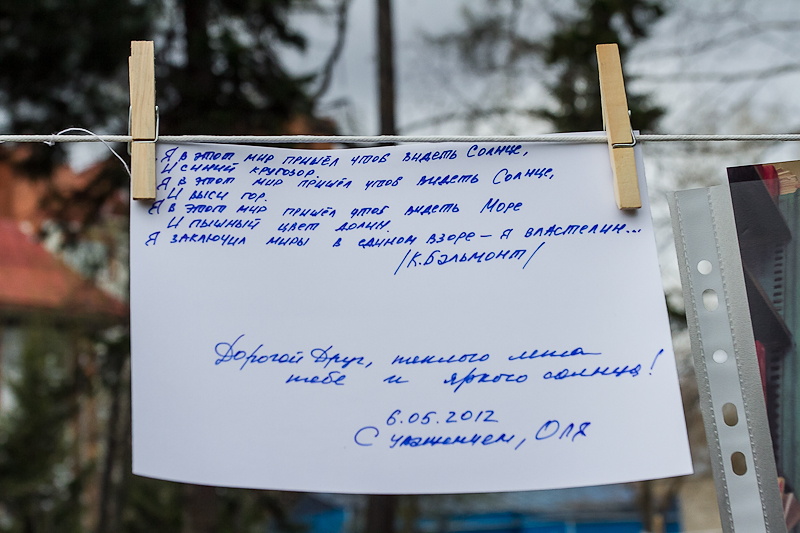 Я в этот мир пришёл чтоб видеть Солнце,
И синий кругозор.
Я в этот мир пришёл чтоб видеть Солнце,
И выси гор.
Я в этот мир пришёл чтоб видеть Море
И пышный цвет долин.
Я заключил миры в едином взоре – я властелин...
/К.Бальмонт/
Дорогой Друг, теплого лета
тебе и яркого солнца!
6.05.2012
С уважением, Оля